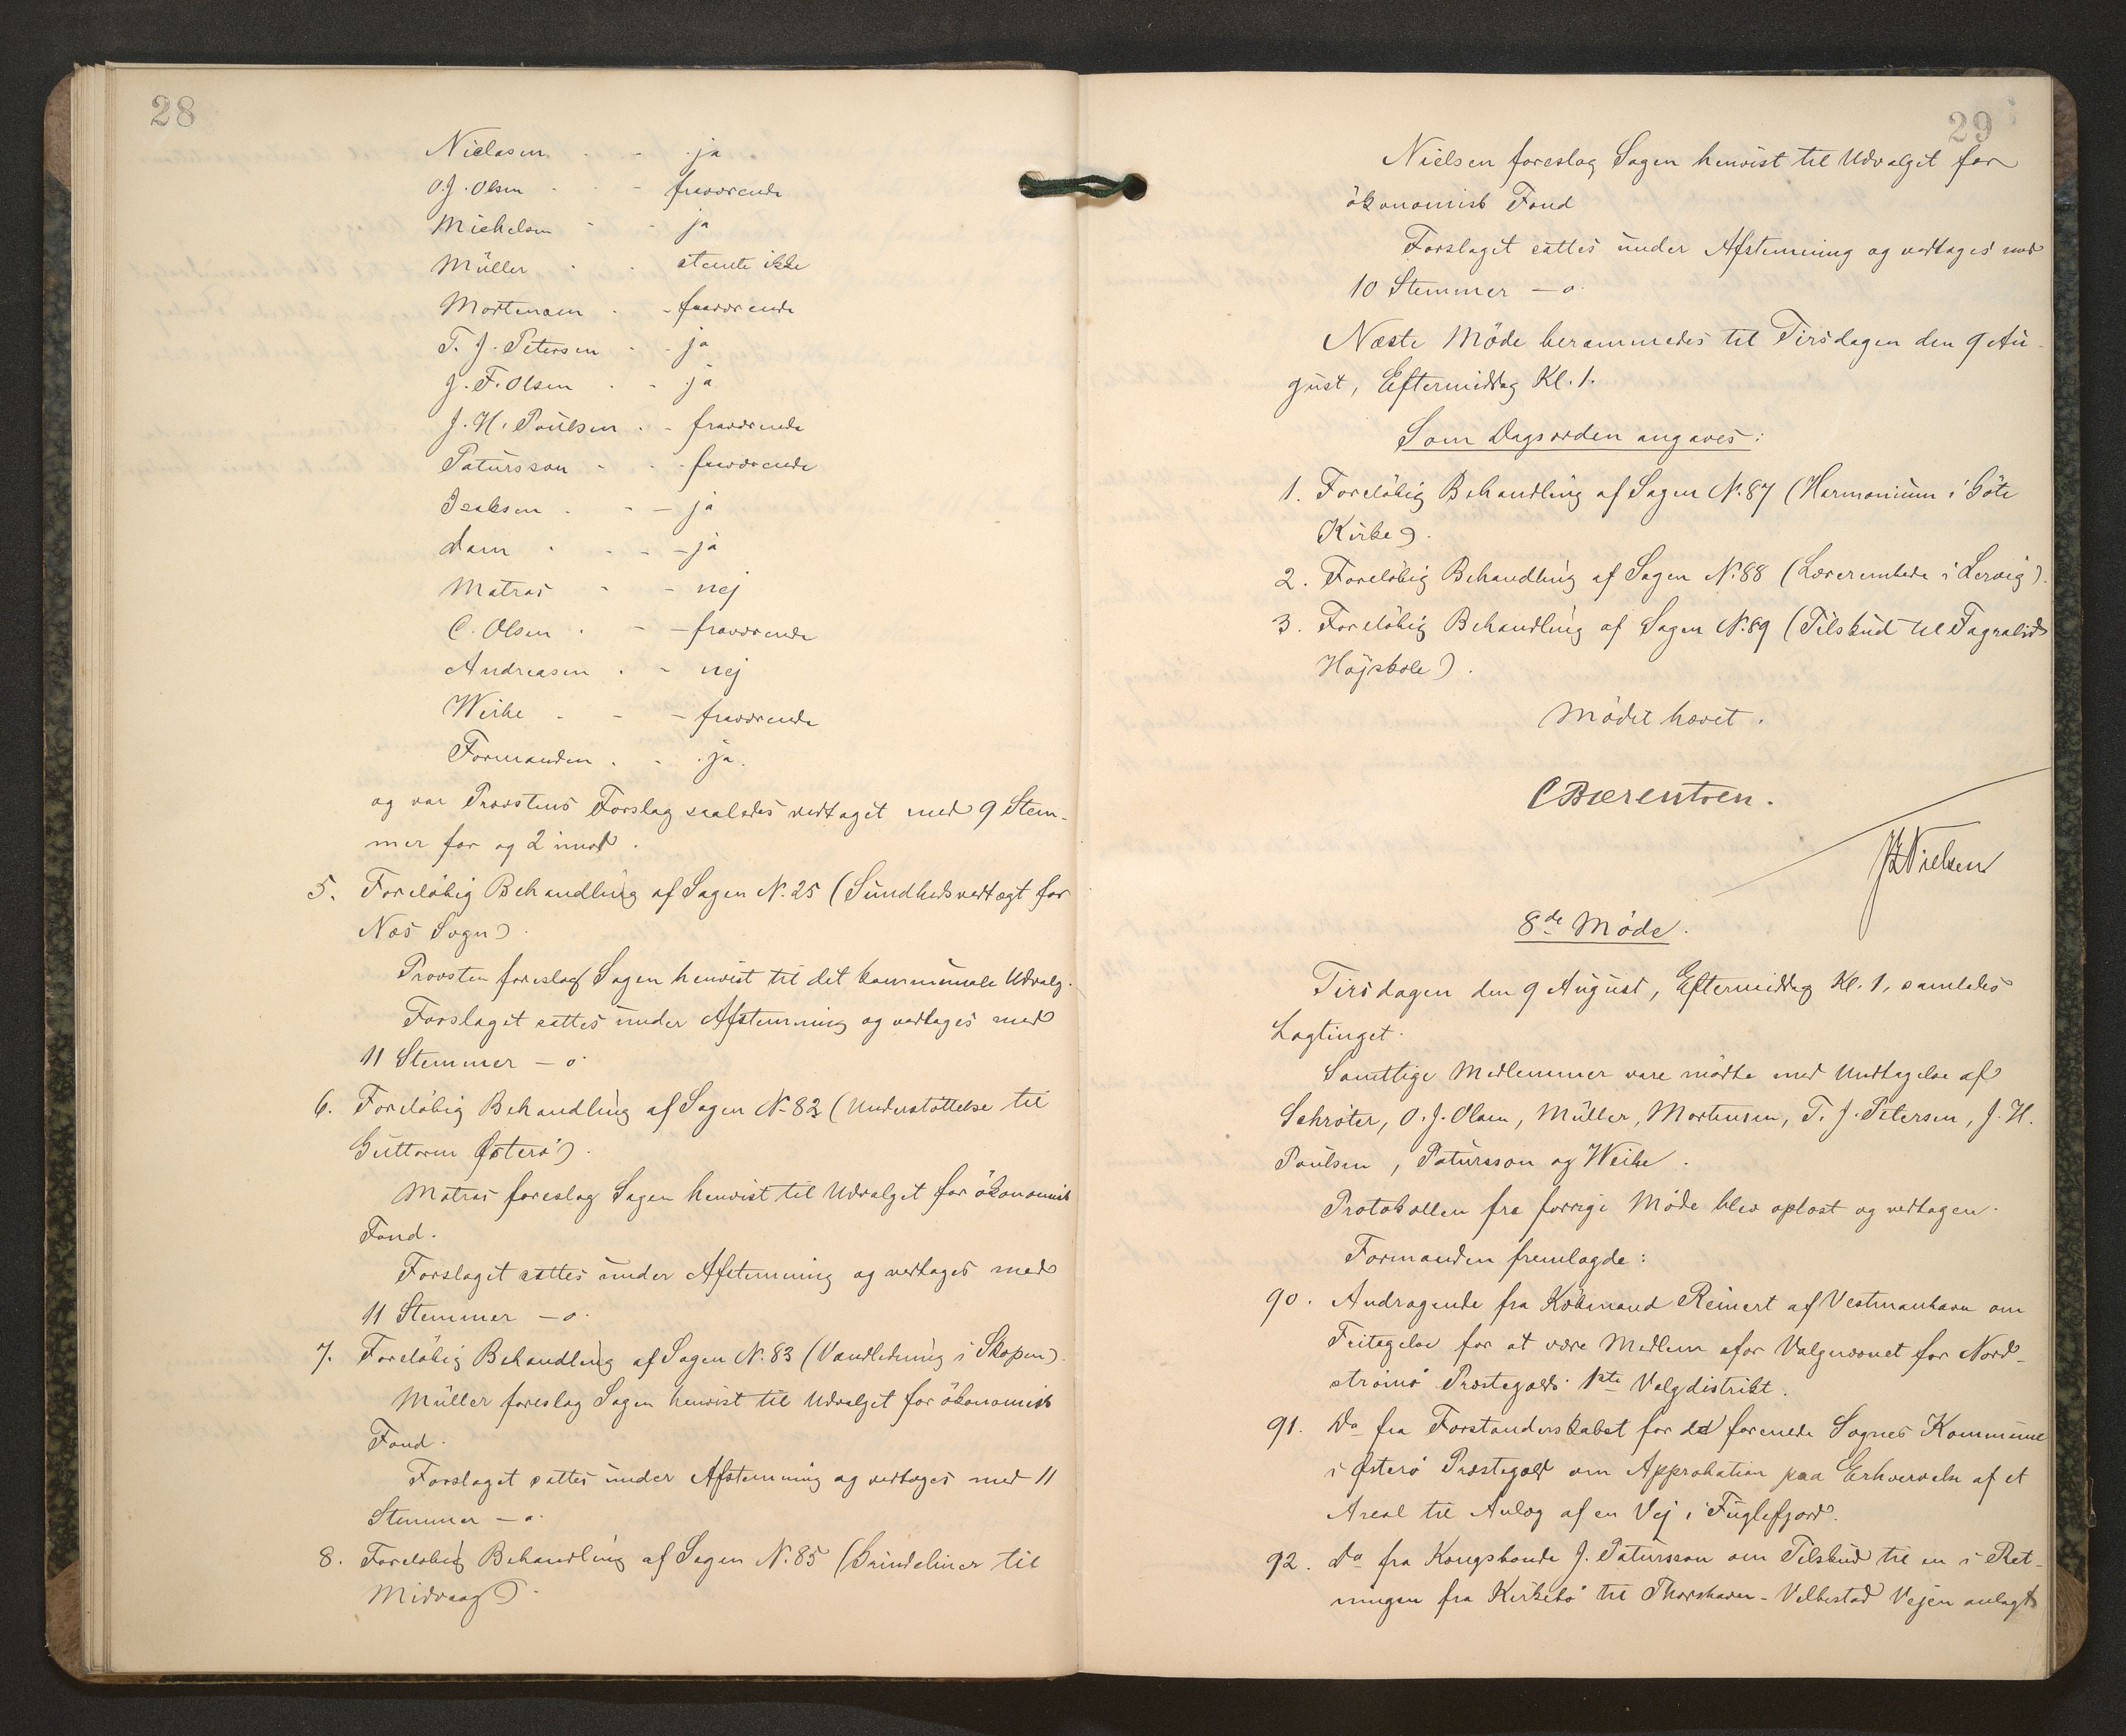 28
Nielsen - - ja
O.J. Olsen - - fraværende
Michelsen - - ja
Müller - - stemte ikke
Mortensen - - fraværende
T. J. Petersen - - ja
J. F. Olsen - - ja
J. H. Poulsen - - fraværende
Patursson - - fraværende
Isaksen - - ja
Dam - - - ja
Matras - - nej
C. Olsen - - fraværende
Andreasen - - nej
Weihe - - fraværende
Formanden - - ja.
og var Provstens Forslag saaledes vedtaget med 9 Stem-
mer for og 2 imod.
5. Foreløbig Behandling af Sagen N. 25 (Sundhedsvedtægt for
Næs Sogn).
Provsten foreslog Sagen henvist til det kommunale Udvalg.
Forslaget sattes under Afstemning og vedtages med
11 Stemmer - o.
6. Foreløbig Behandling af Sagen N. 82 (Understøttelse til
Guttorm Østerø).
Matras foreslog Sagen henvist til Udvalget for økonomisk
Fond.
Forslaget sattes under Afstemning og vedtages med
11 Stemmer - o.
7. Foreløbig Behandling af Sagen N. 83 (Vandledning i Skopen).
Müller foreslog Sagen henvist til Udvalget for økonomisk
Fond.
Forslaget sattes under Afstemning og vedtoges med 11
Stemmer - o.
8. Foreløbig Behandling af Sagen N. 85 (Grindeliner til
Midvaag).
29
Nielsen foreslog Sagen henvist til Udvalget for
økonomisk Fond
Forslaget sattes under Afstemning og vedtages med
10 Stemmer - o.
Næste Møde berammedes til Tirsdagen den 9 Au-
gust, Eftermiddag Kl. 1.
Som Dagsorden angaves:
1. Foreløbig Behandling af Sagen N. 87 (Harmonium i Göte
Kirke).
2. Foreløbig Behandling af Sagen N. 88 (Lærerembede i Lervig).
3. Foreløbig Behandling af Sagen N. 89 (Tilskud til Fagralid
Højskole).
Mødet hævet.
C Bærentsen.
Nielsen
8de Møde.
Tirsdagen den 9 August, Eftermiddag Kl. 1, samledes
Lagtinget.
Samtlige Medlemmer vare mødte med Undtagelse af
Schrøter, O. J. Olsen, Müller, Mortensen, T. J. Petersen, J. H.
Poulsen, Patursson og Weihe.
Protokollen fra forrige Møde blev oplæst og vedtagen.
Formanden fremlagde:
90. Andragende fra Købmand Reinert af Vestmanhavn om
Fritagelse for at være Medlem afor Valgnævnet for Nord-
strømø Præstegælds 1ste Valgdistrikt.
91. Do fra Forstanderskabet for de forenede Sognes Kommune
i Østerø Præstegæld om Approbation paa Erhvervelse af et
Areal til Anlæg af en Vej i Fuglefjord.
92. Do fra Kongsbonde J. Patursson om Tilskud til en i Ret-
ningen fra Kirkebø til Thorshavn-Velbestad Vejen anlagt